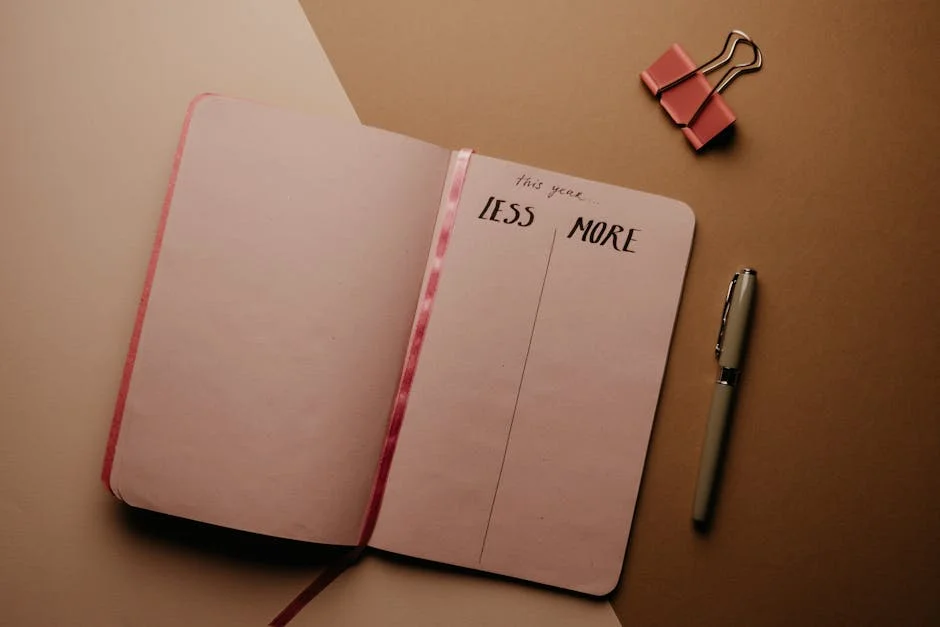 this year...
LESS MORE